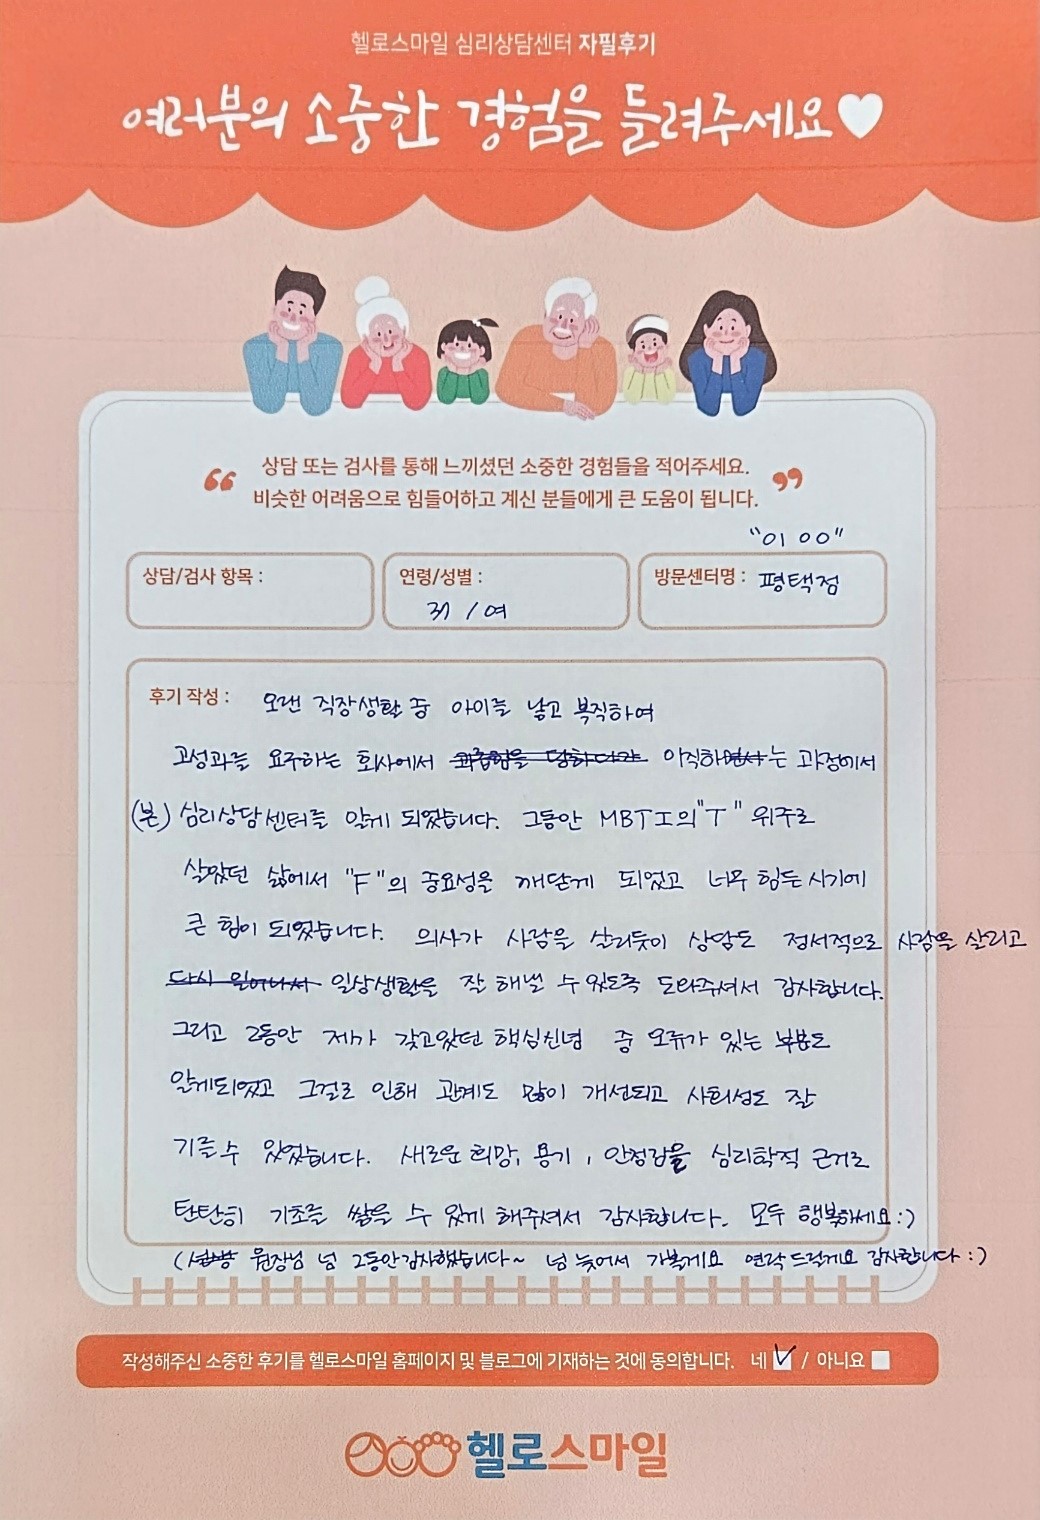 헬로스마일 심리상담센터 자필후기
여러분의 소중한 경험을 들려주세요♥
“ 상담 또는 검사를 통해 느끼셨던 소중한 경험들을 적어주세요. ”
비슷한 어려움으로 힘들어하고 계신 분들에게 큰 도움이 됩니다.
"이 ㅇㅇ"
상담/검사 항목 :
연령/성별 :
37 / 여
방문센터명 : 평택점
후기 작성 : 오랜 직장생활 중 아이를 낳고 복직하여
고성과를 요구하는 회사에서 이직하는 과정에서
(본) 심리상담센터를 알게 되었습니다. 그동안 MBTI의 "T" 위주로
살았던 삶에서 "F"의 중요성을 깨닫게 되었고 너무 힘든 시기에
큰 힘이 되었습니다. 의사가 사람을 살리듯이 상담도 정서적으로 사람을 살리고
다시 일어나서 일상생활을 잘 해낼 수 있도록 도와주셔서 감사합니다.
그리고 그동안 제가 갖고있던 핵심신념 중 오류가 있는 부분도
알게되었고 그걸로 인해 관계도 많이 개선되고 사회성도 잘
기를 수 있었습니다. 새로운 희망, 용기, 안정감을 심리학적 근거로
탄탄히 기초를 쌓을 수 있게 해주셔서 감사합니다. 모두 행복하세요:)
( 원장님 넘 그동안 감사했습니다~ 넘 늦어서 가볼게요 연락드릴게요 감사합니다 :)
작성해주신 소중한 후기를 헬로스마일 홈페이지 및 블로그에 기재하는 것에 동의합니다. 네 ✓ / 아니요
헬로스마일